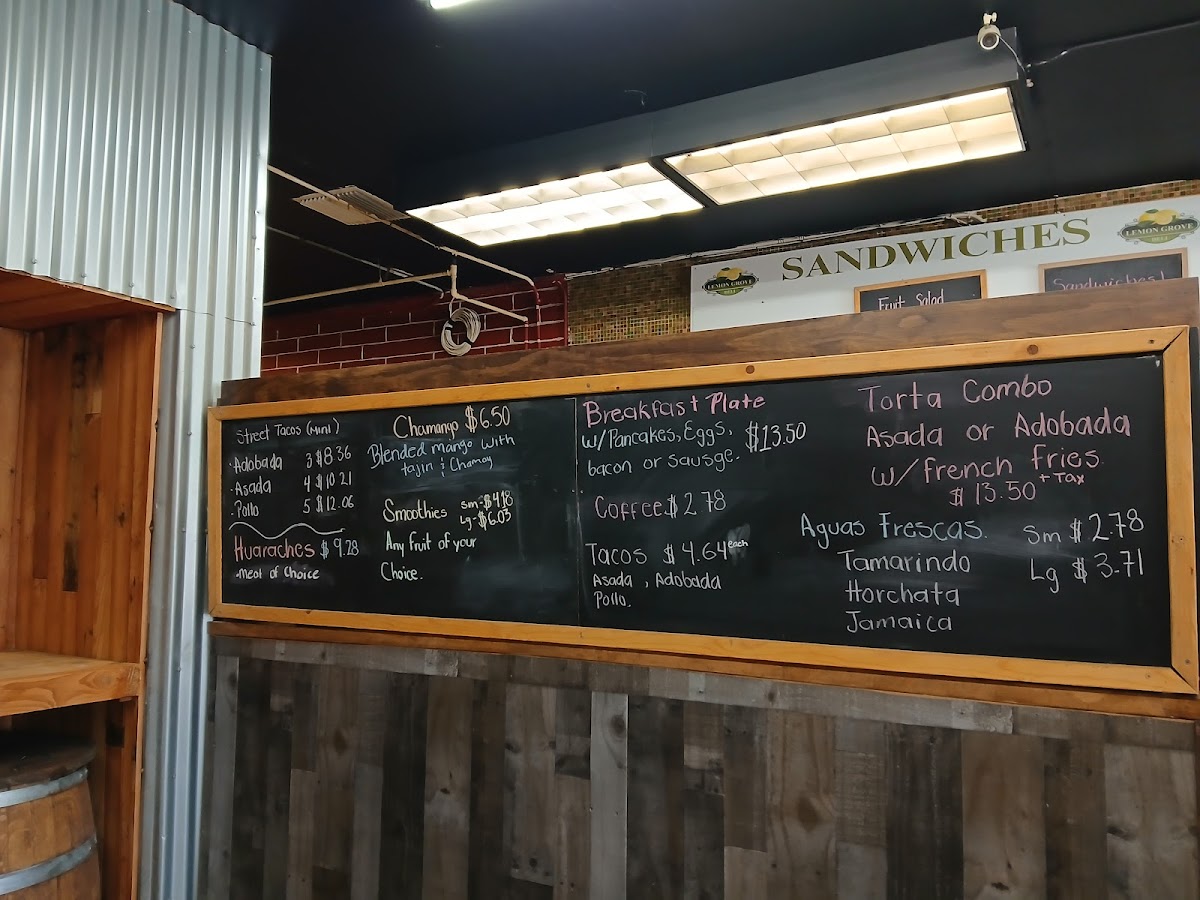 SANDWICHES
LEMON GROVE
DELI
LEMON GROVE
DELI
Fruit Salad
Sandwiches!
Street Tacos (Mini)
· Adobada 3 $8.36
· Asada 4 $10.21
· Pollo 5 $12.06
Huaraches $9.28
-meat of choice
Chamango $6.50
Blended mango with
tajin & Chamoy
Smoothies sm-$4.18
Lg-$6.03
Any fruit of your
Choice.
Breakfast Plate
w/Pancakes, Eggs, $13.50
bacon or sausge.
Coffee $2.78
Tacos $4.64 each
Asada, Adobada
Pollo.
Torta Combo
Asada or Adobada
w/french fries
$13.50 +Tax
Aguas Frescas. Sm $2.78
Tamarindo Lg $3.71
Horchata
Jamaica